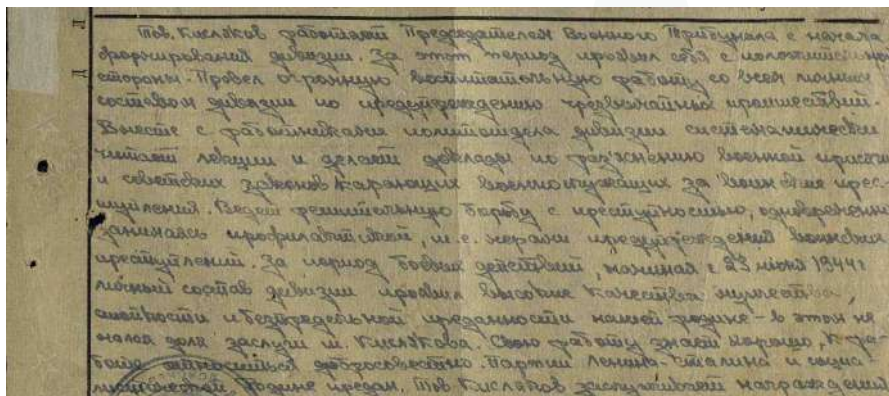 Тов. Кисляков работает Председателем Военного Трибунала с начала
формирования дивизии. За этот период проявил себя с положительной
стороны. Провел огромную воспитательную работу со всем личным
составом дивизии по предупреждению чрезвычайных происшествий.
Вместе с работниками политотдела дивизии систематически
читает лекции и делает доклады по раз'яснению военной присяги
и советских законов карающих военнослужащих за воинские прес-
тупления. Ведет решительную борьбу с преступностью, одновременно
занимаясь профилактикой, т.е. мерами предупреждения воинских
преступлений. За период боевых действий, начиная с 23 июня 1944 г
личный состав дивизии проявил высокие качества мужества,
стойкости и безпредельной преданности нашей родине - в этом не
малая доля заслуги т. Кислякова. Свою работу знает хорошо, к ра-
боте относиться добросовестно. Партии Ленина-Сталина и социа-
листической родине предан. Тов Кисляков заслуживает награждения